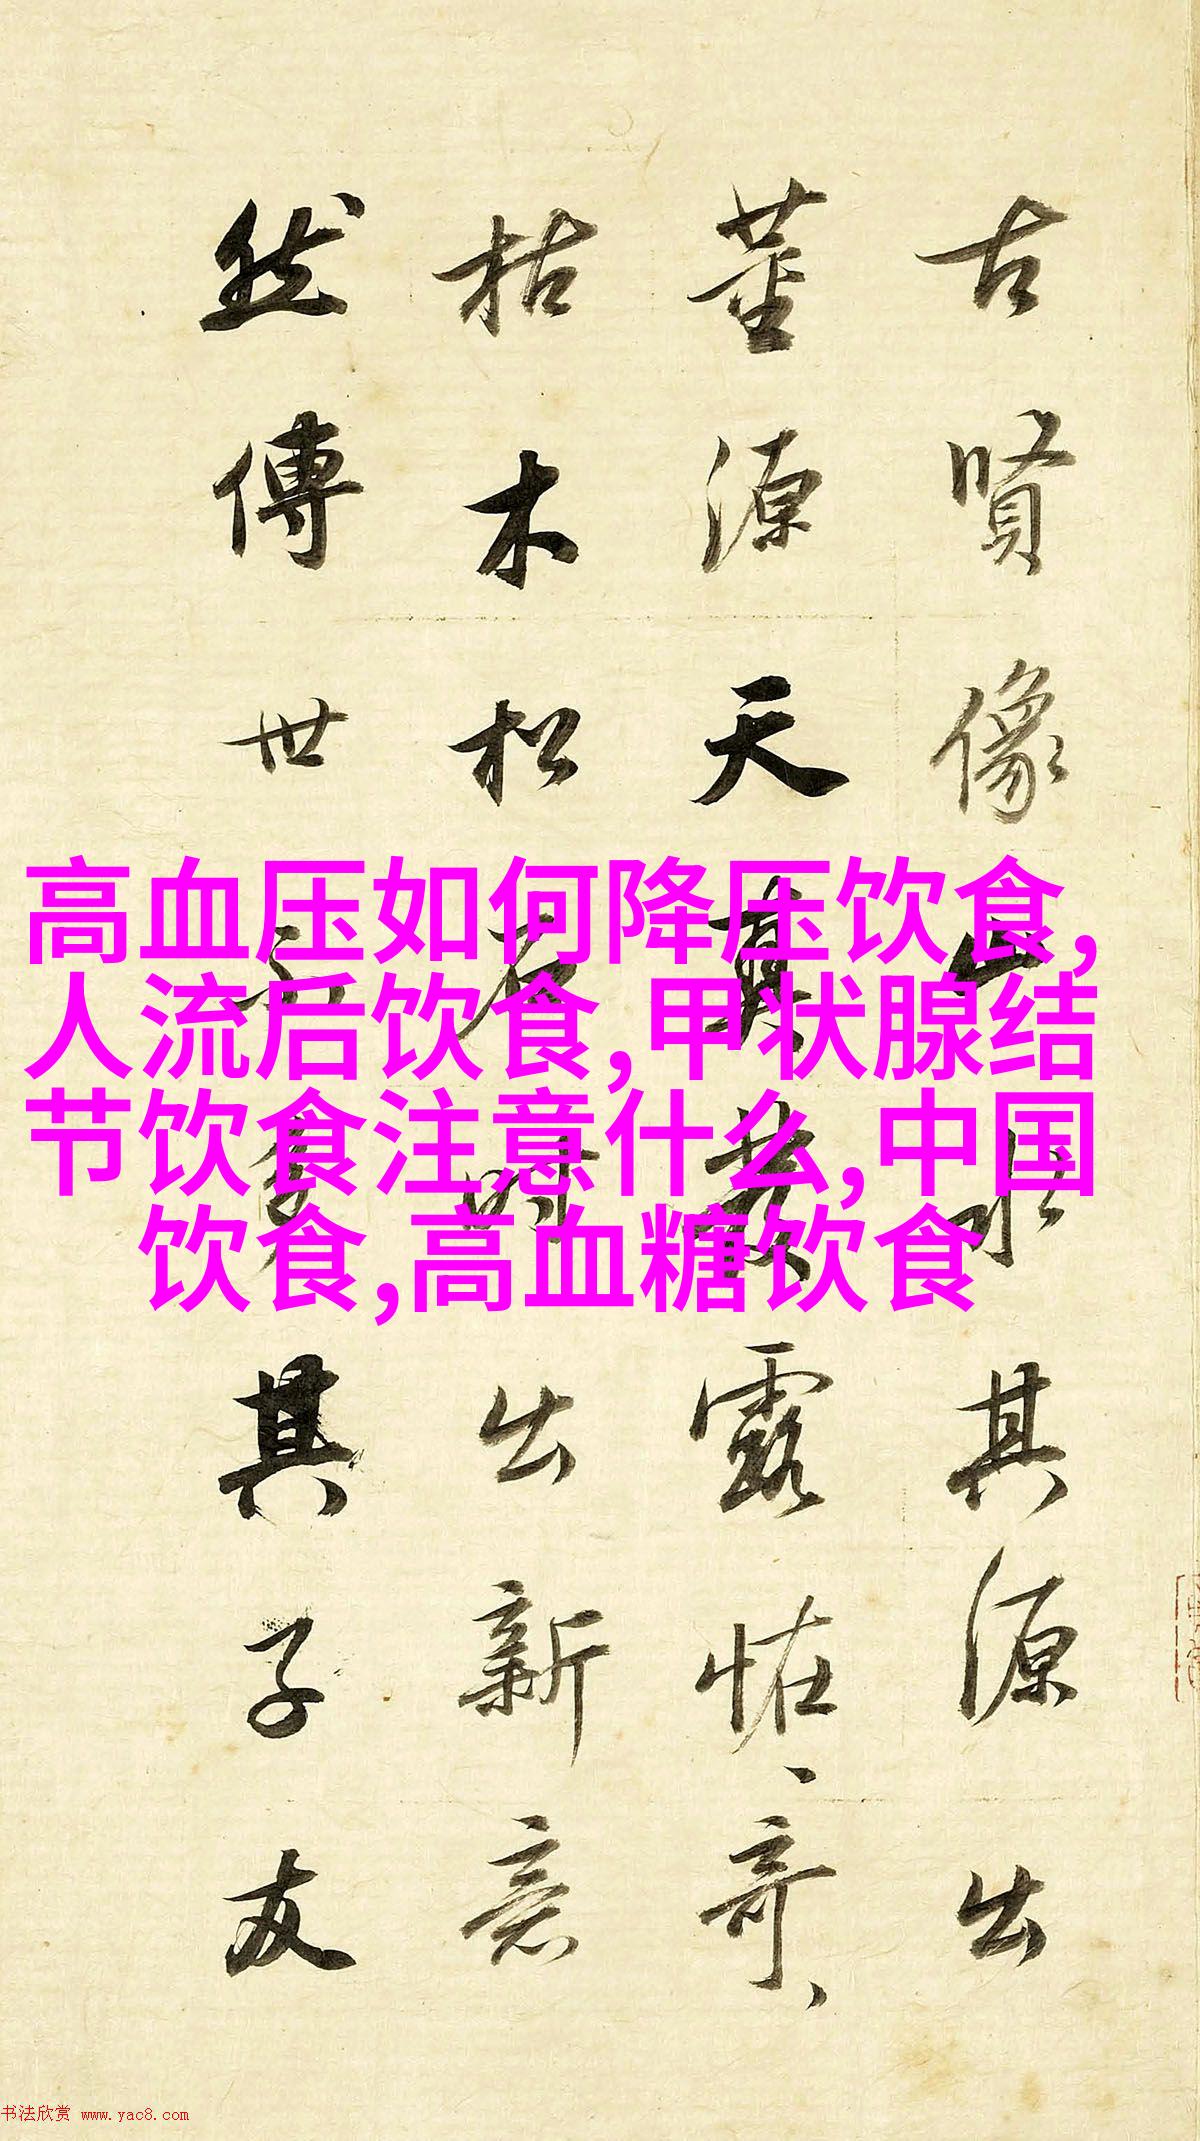 古賢像山水其源出
董源天真發露恠、奇、
枯木松石時出新意
然傳世不多其子友
高血压如何降压饮食,
人流后饮食,甲状腺结
节饮食注意什么,中国
饮食,高血糖饮食
书法欣赏 www.yac8.com